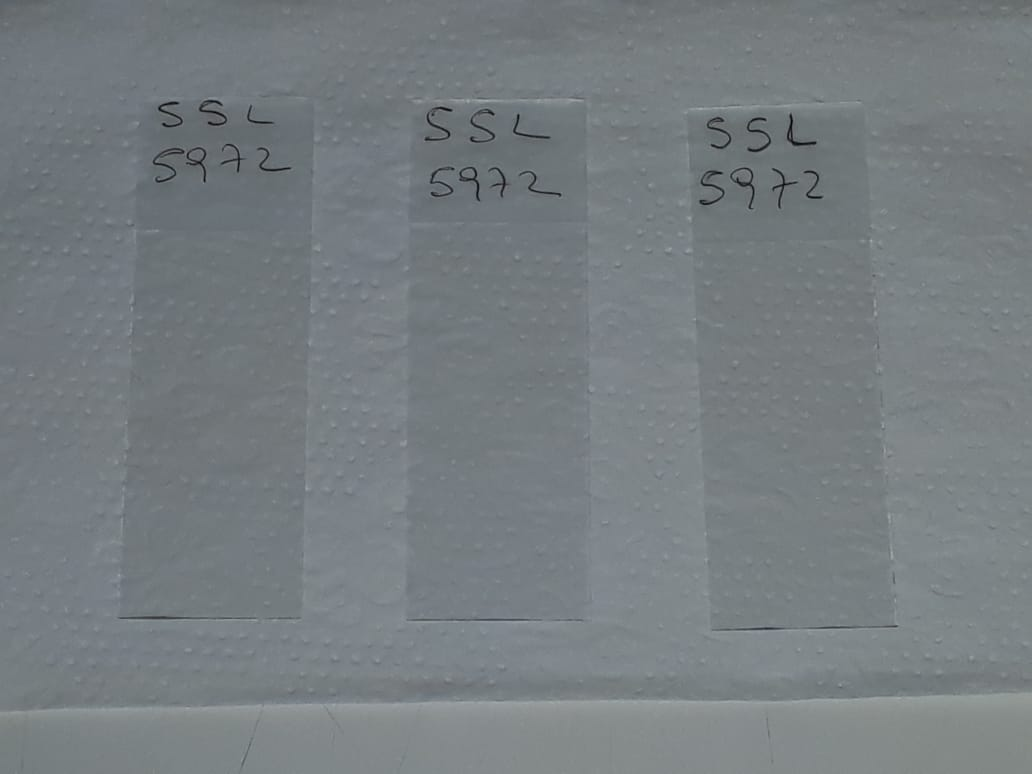 SSL
5972
SSL
5972
SSL
5972